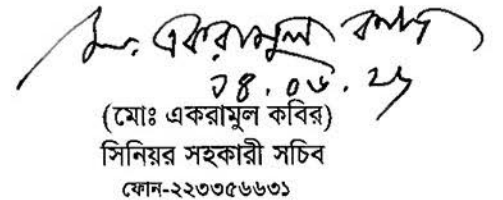 মো. একরামুল কবির
(মোঃ একরামুল কবির)
সিনিয়র সহকারী সচিব
ফোন-২২৩৩৫৬৬৩১